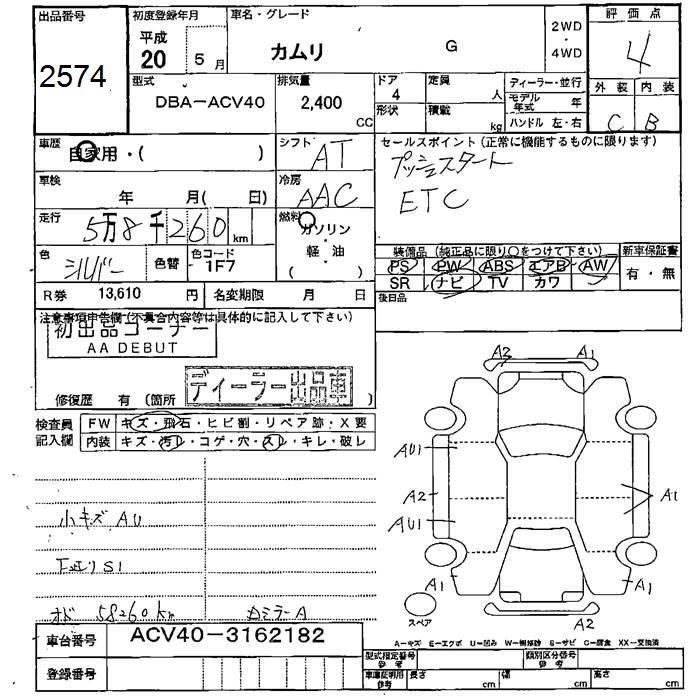 出品番号
2574
初度登録年月
平成
20 5 月
車名・グレード
カムリ G
2WD
・
4WD
評価点
4
外装 内装
C B
型式
DBA-ACV40
排気量
2,400
CC
ドア
4
形状
定員
人
積載
kg
ディーラー・並行
モデル年式 年
ハンドル 左・右
車歴
自家用・( )
シフト
AT
セールスポイント(正常に機能するものに限ります)
プッシュスタート
ETC
車検
年 月( 日)
冷房
AAC
走行
5万8千260 km
燃料
ガソリン
・
軽・油
( )
色
シルバー
色替
色コード
1F7
装備品(純正品に限り○をつけて下さい)
PS PW ABS エアB AW
SR ナビ TV カワ
新車保証書
有・無
後日品
R券 13,610 円
名変期限 月 日
注意事項申告欄(不具合内容等は具体的に記入して下さい)
初出品コーナー
AA DEBUT
修復歴 有(箇所 )
ディーラー出品車
検査員
記入欄
FW キズ・飛石・ヒビ割・リペア跡・X要
内装 キズ・汚レ・コゲ・穴・スレ・キレ・破レ
小キズ AU
S1
58260km
ミラーA
A2 A1
AU1
A2
AU1
A1
A1
A1
A2
スペア
A-キズ E-エクボ U-凹み W-補修跡 S-サビ C-腐食 XX-交換済
車台番号
ACV40-3162182
登録番号
型式指定番号
参考
類別区分番号
参考
車庫証明用
参考
長さ cm
幅 cm
高さ cm